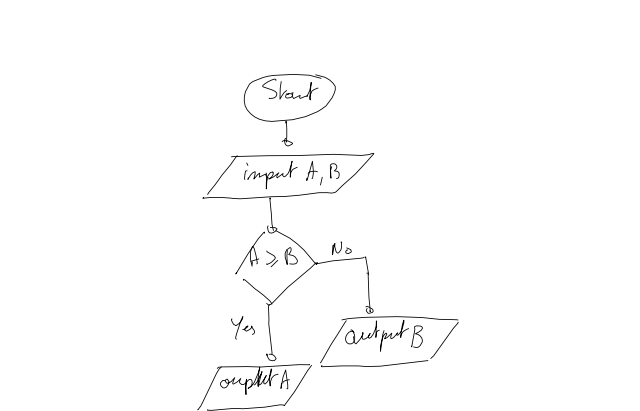 Start
input A, B
A ⩾ B
No
Yes
output B
output A